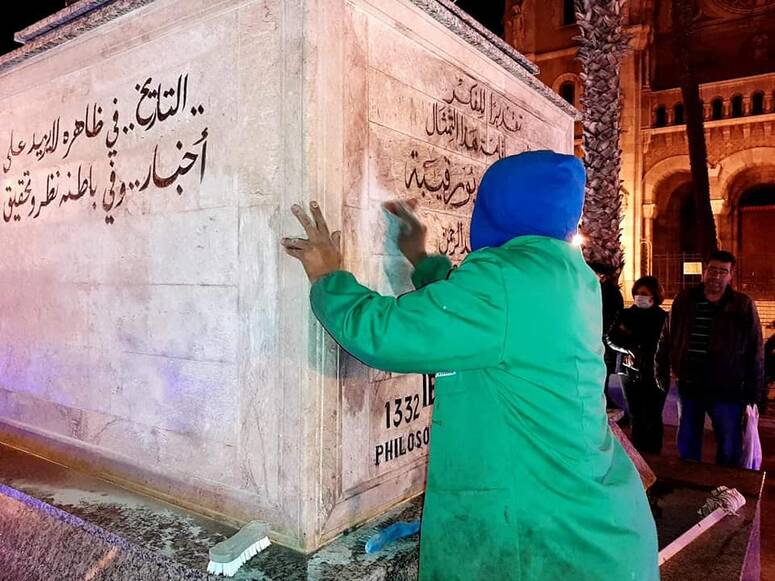 ..التاريخ.. في ظاهره لايزيد على
أخبار.. وفي باطنه نظر وتحقيق
تقديرا للمفكر
هذا التمثال
بورقيبة
الرحمن
1332
PHILOSO